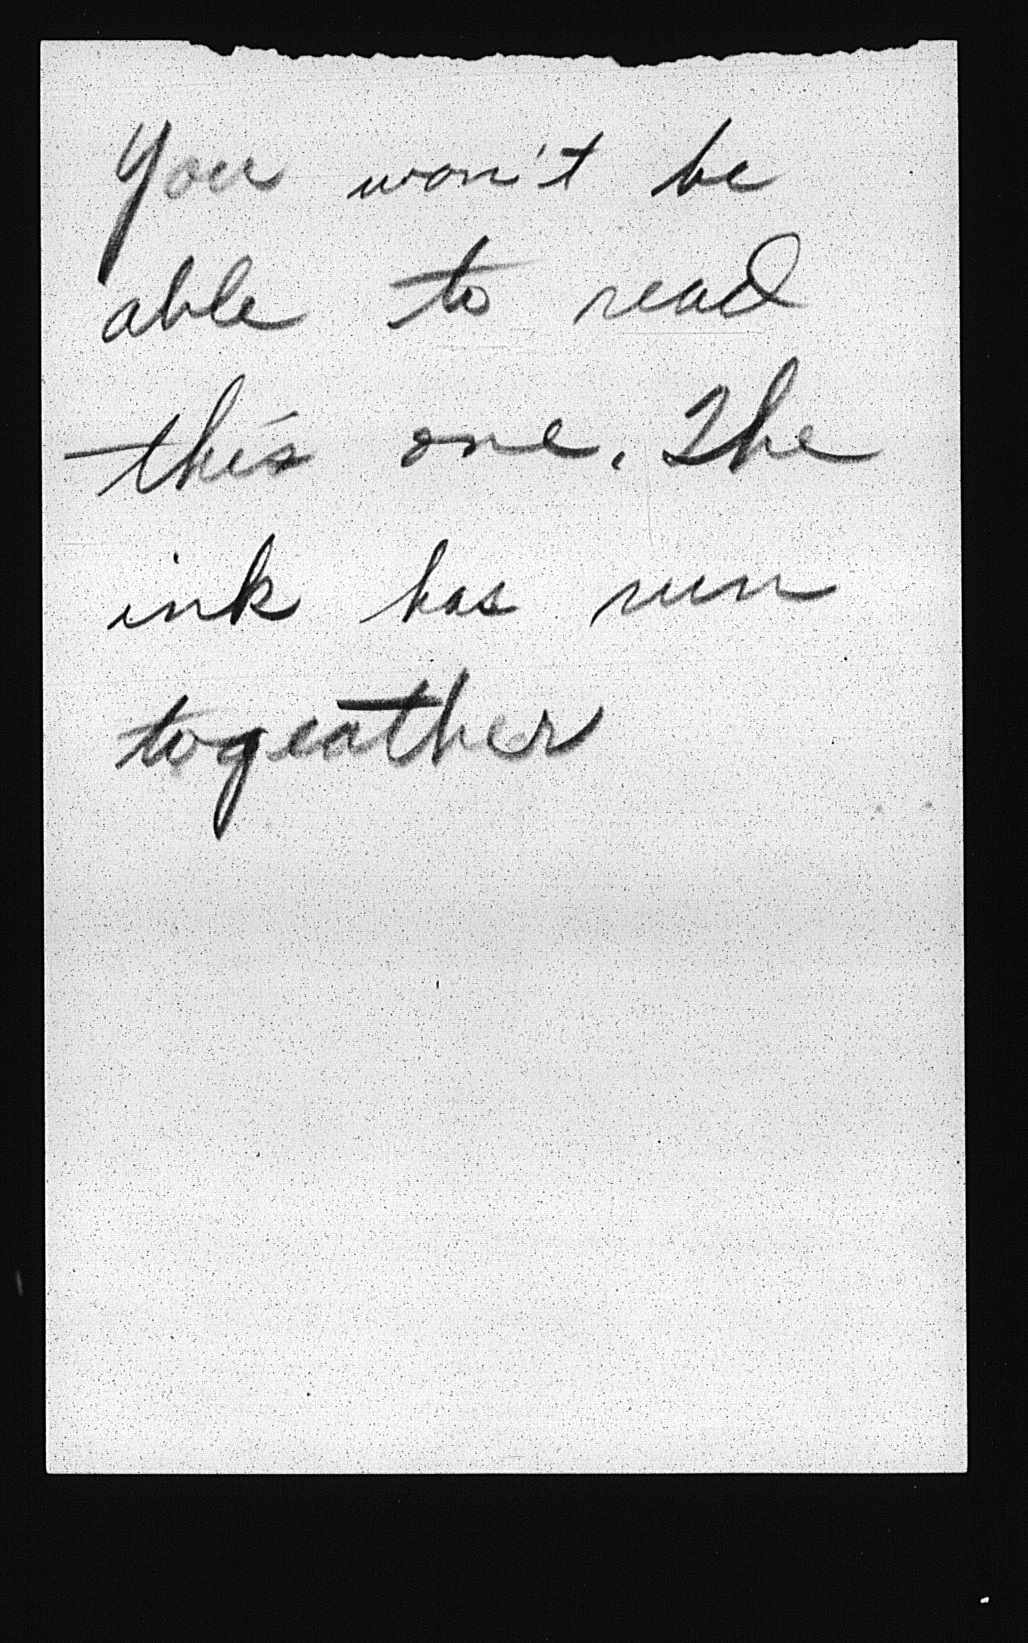 You won't be
able to read
this one. The
ink has run
togeather